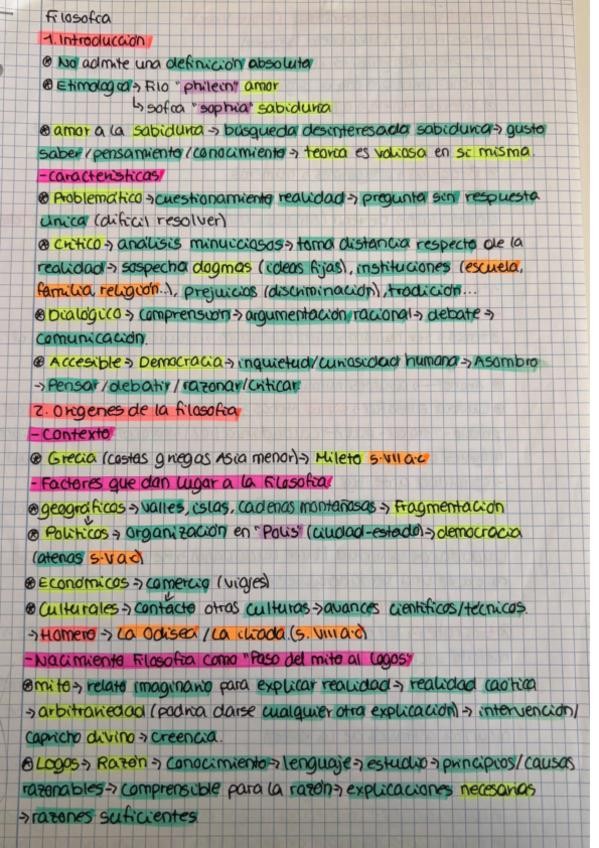 Filosofía
1. Introducción
⊛ No admite una definición absoluta
⊛ Etimología → Filo "philein" amor
↳ sofía "sophia" sabiduría
⊛ amor a la sabiduría → búsqueda desinteresada sabiduría → gusto
saber / pensamiento / conocimiento → teoría es valiosa en sí misma.
- Características
⊛ Problemático → cuestionamiento realidad → pregunta sin respuesta
única (difícil resolver)
⊛ Crítico → análisis minuiciosos → toma distancia respecto de la
realidad → sospecha dogmas (ideas fijas), instituciones (escuela,
familia, religión...), prejuicios (discriminación), tradición...
⊛ Dialógico → comprensión → argumentación racional → debate →
comunicación.
⊛ Accesible → Democracia → inquietud/curiosidad humana → Asombro
→ Pensar / debatir / razonar / criticar
2. Orígenes de la filosofía
- Contexto
⊛ Grecia (costas griegas Asia menor) → Mileto s.VII a.c
- Factores que dan lugar a la Filosofía
⊛ geográficos → valles, islas, cadenas montañosas → Fragmentación
⊛ Políticos → organización en "Polis" (ciudad-estado) → democracia
(atenas s.V a.c)
⊛ Económicos → comercio (viajes)
⊛ Culturales → contacto otras culturas → avances científicos/técnicos
→ Homero → La Odisea / La ilíada (s. VIII a.c)
- Nacimiento Filosofía como "Paso del mito al Logos"
⊛ mito → relato imaginario para explicar realidad → realidad caótica
→ arbitrariedad (podría darse cualquier otra explicación) → intervención/
capricho divino → creencia.
⊛ Logos → Razón → conocimiento → lenguaje → estudio → principios/causas
razonables → comprensible para la razón → explicaciones necesarias
→ razones suficientes